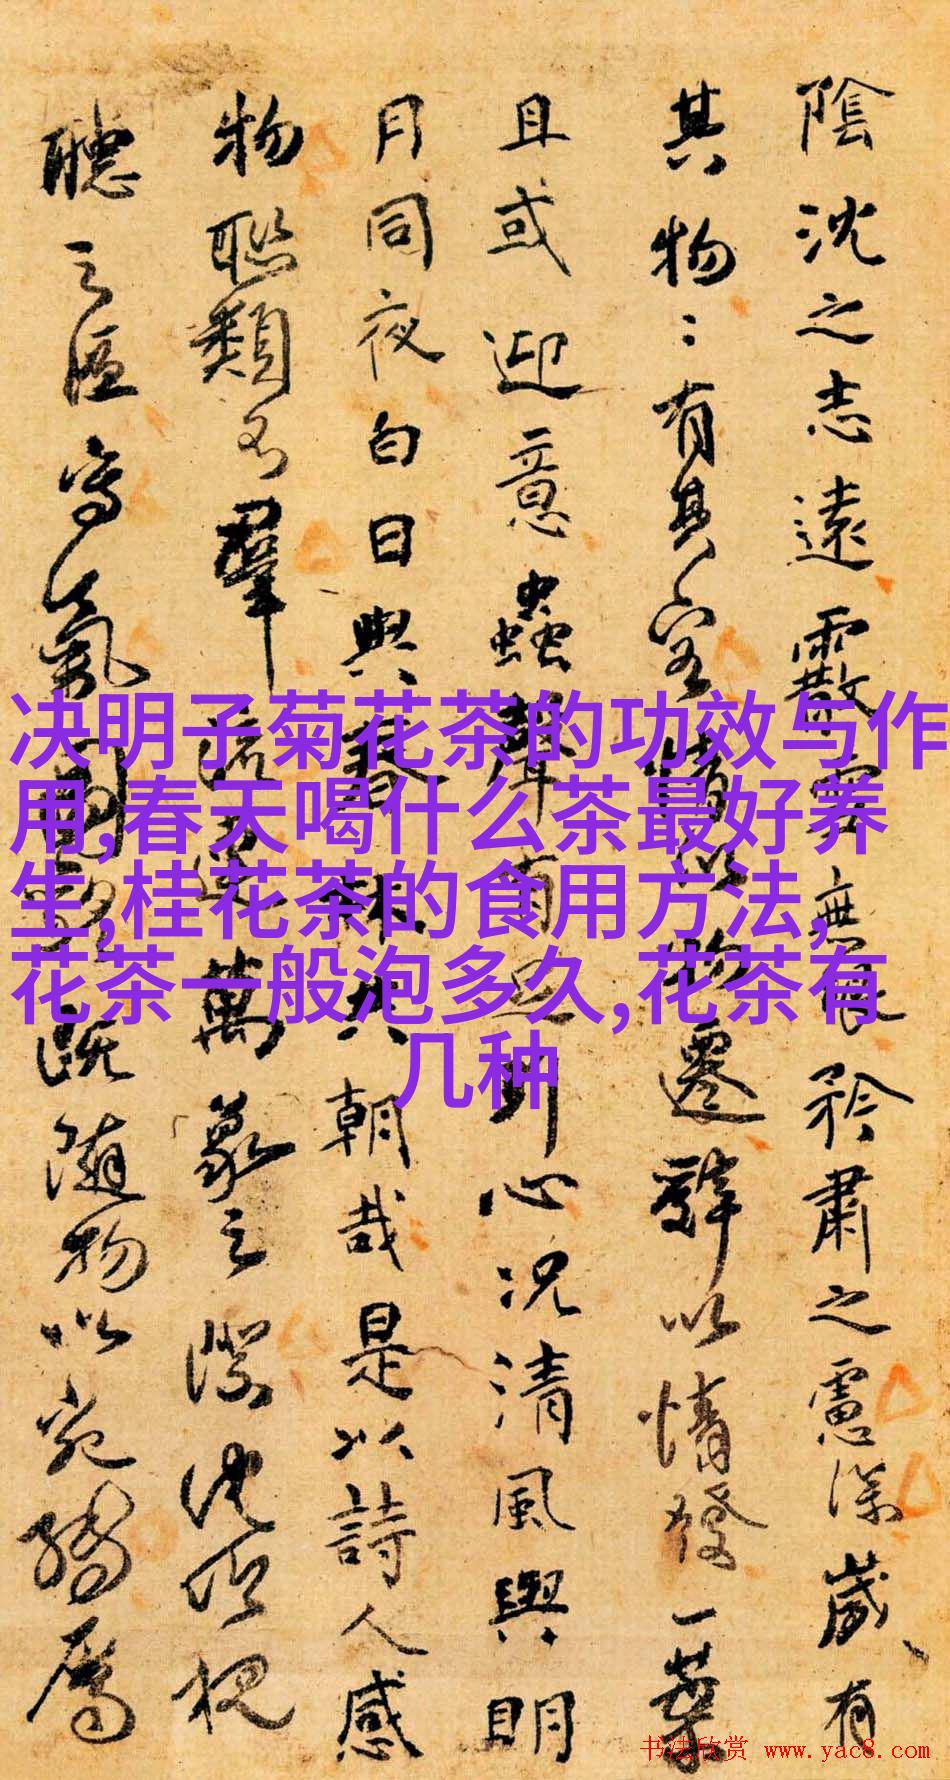 陰沈之志遠霰雪無垠矜肅之慮深歲有
其物〻有其容情以物遷辭以情發一葉
且或迎意蟲聲有足引心況清風與明
月同夜白日與春林共朝哉是以詩人感
物聯類不窮流連萬象之際沈吟視
聽之區寫氣圖貌既隨物以宛轉屬
决明子菊花茶的功效与作
用,春天喝什么茶最好养
生,桂花茶的食用方法,
花茶一般泡多久,花茶有
几种
书法欣赏 www.yac8.com